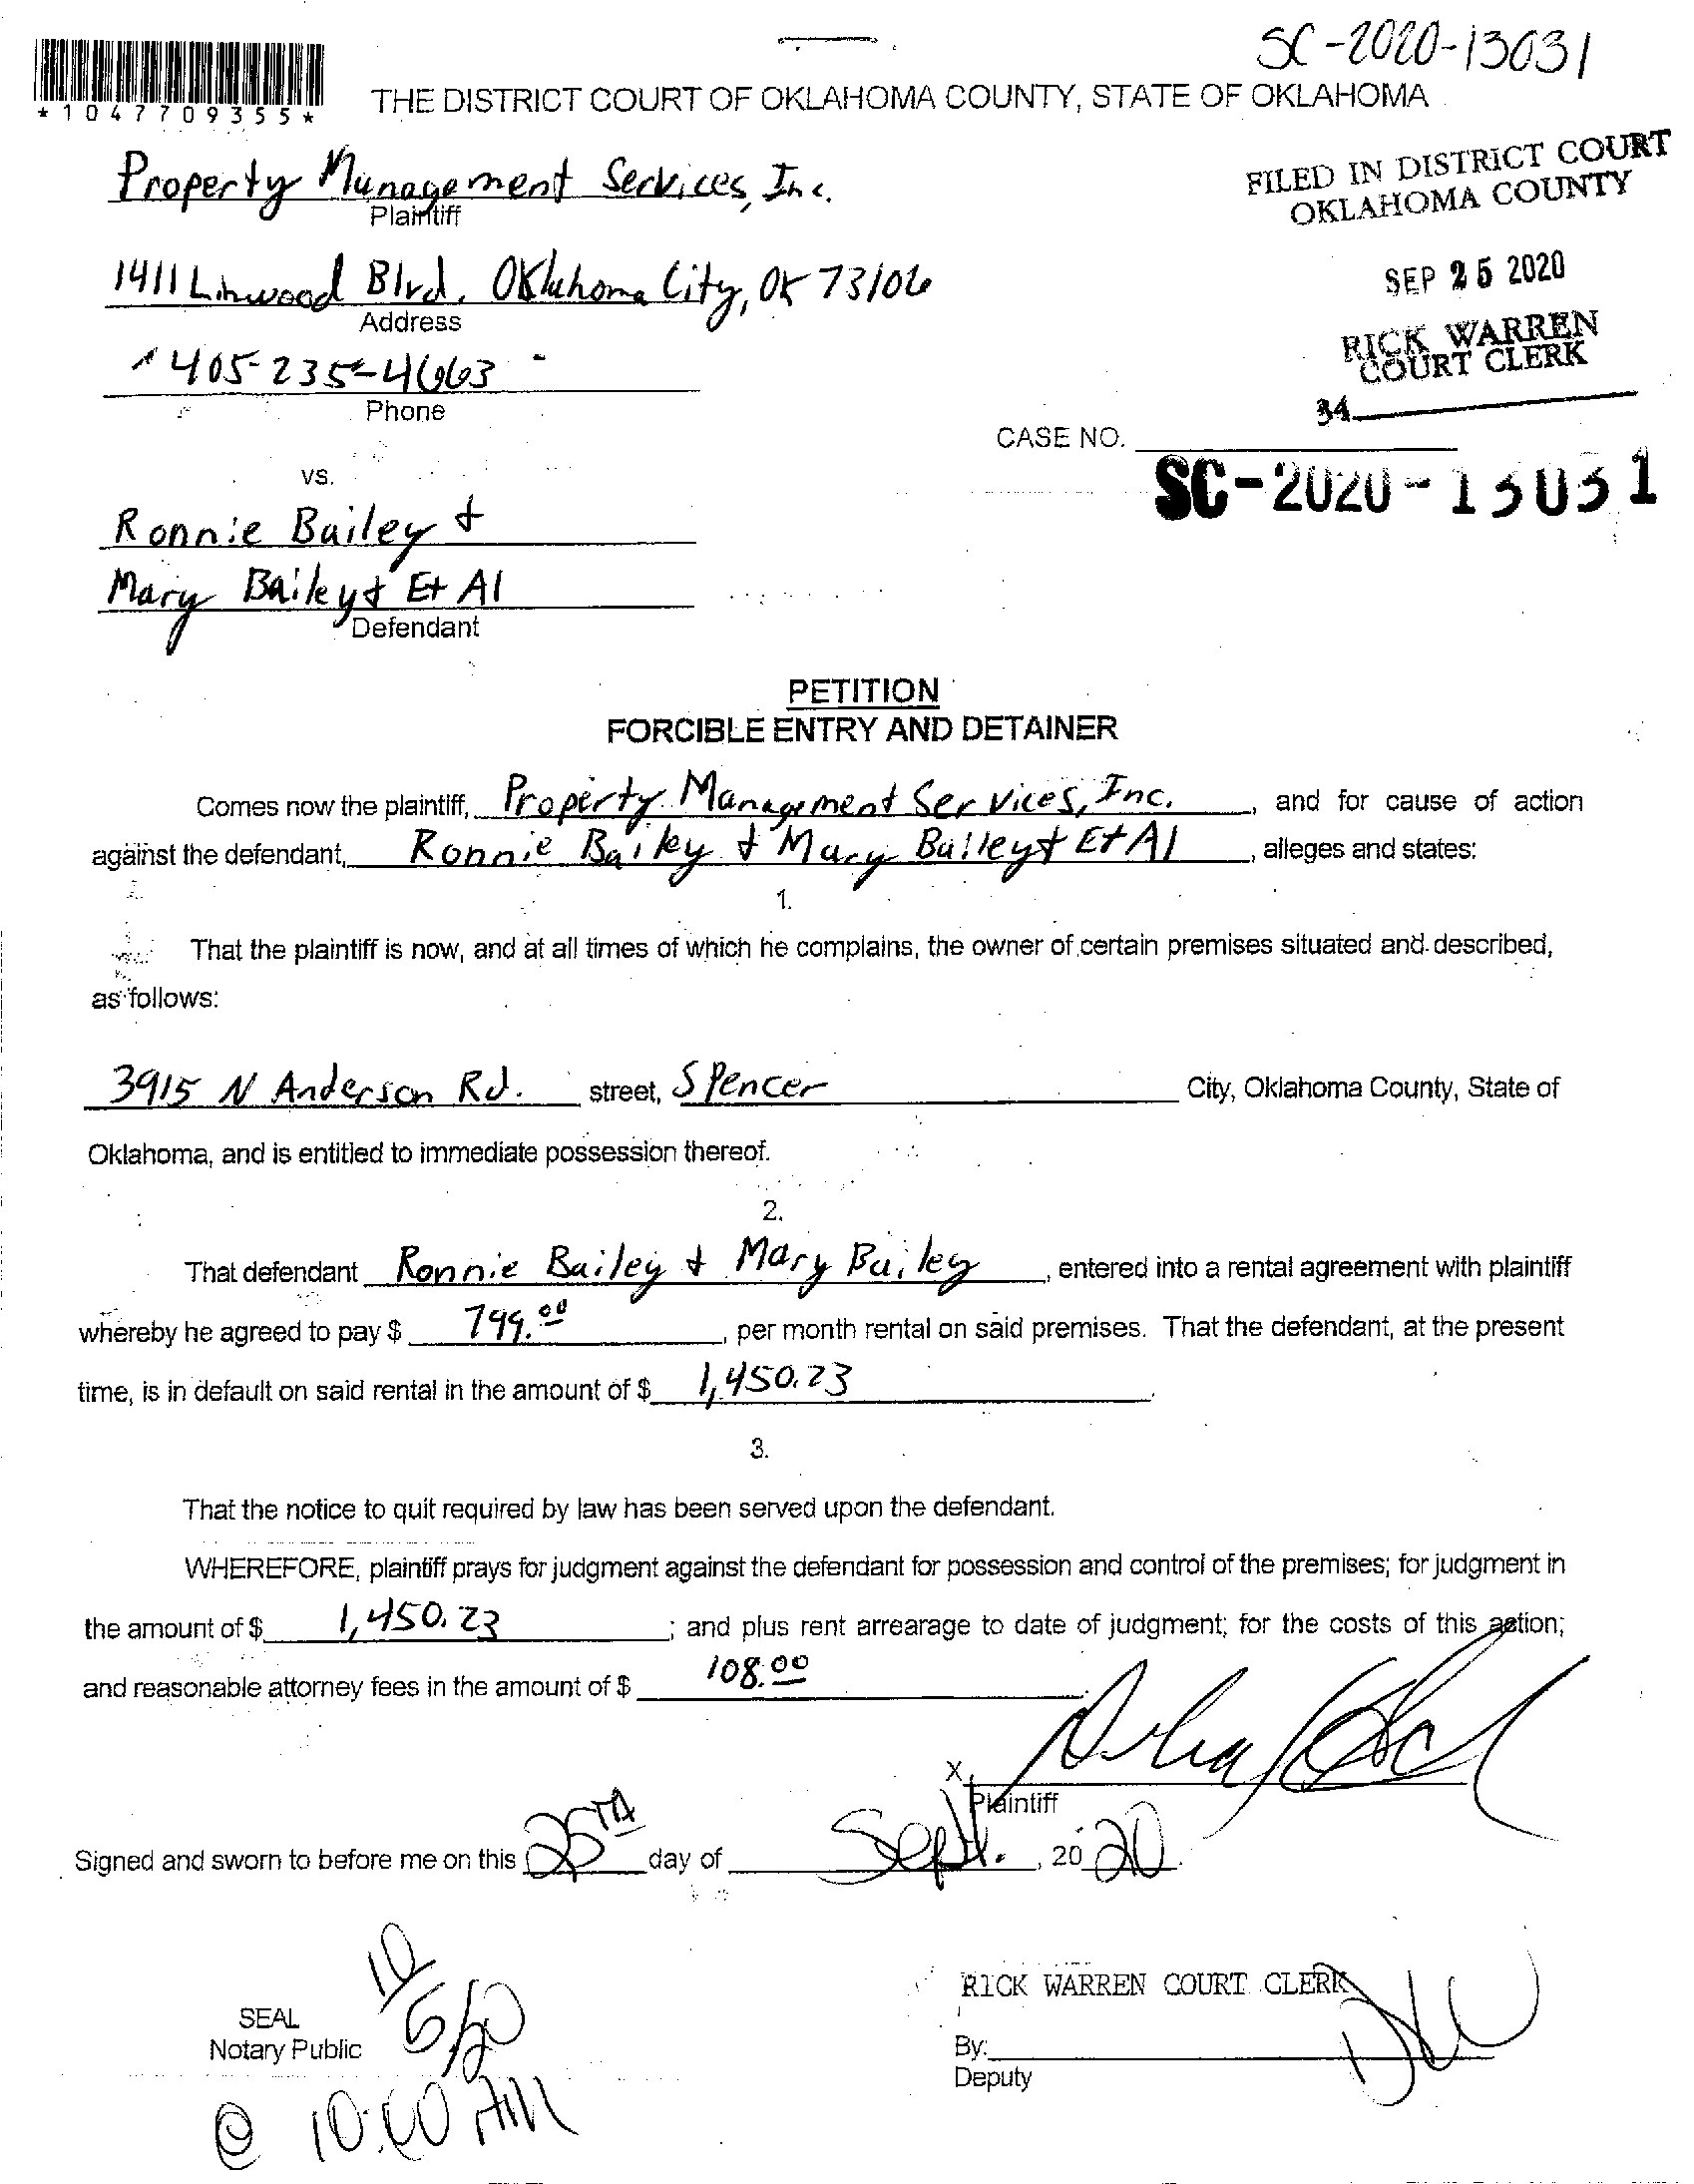 SC-2020-13031
*1047709355*
THE DISTRICT COURT OF OKLAHOMA COUNTY, STATE OF OKLAHOMA
Property Management Services, Inc.
Plaintiff
FILED IN DISTRICT COURT
OKLAHOMA COUNTY
1411 Linwood Blvd. Oklahoma City, OK 73106
Address
SEP 25 2020
RICK WARREN
COURT CLERK
405-235-4663
Phone
34
CASE NO.
SC-2020-13031
vs.
Ronnie Bailey &
Mary Bailey & Et Al
Defendant
PETITION
FORCIBLE ENTRY AND DETAINER
Comes now the plaintiff, Property Management Services, Inc. , and for cause of action
against the defendant, Ronnie Bailey & Mary Bailey & Et Al , alleges and states:
1.
That the plaintiff is now, and at all times of which he complains, the owner of certain premises situated and described,
as follows:
3915 N Anderson Rd. street, Spencer City, Oklahoma County, State of
Oklahoma, and is entitled to immediate possession thereof.
2.
That defendant Ronnie Bailey & Mary Bailey , entered into a rental agreement with plaintiff
whereby he agreed to pay $ 799.00 , per month rental on said premises. That the defendant, at the present
time, is in default on said rental in the amount of $ 1,450.23 .
3.
That the notice to quit required by law has been served upon the defendant.
WHEREFORE, plaintiff prays for judgment against the defendant for possession and control of the premises; for judgment in
the amount of $ 1,450.23 ; and plus rent arrearage to date of judgment; for the costs of this action;
and reasonable attorney fees in the amount of $ 108.00 .
X
Plaintiff
Signed and sworn to before me on this 25TH day of Sept. , 2020.
10/5/20
SEAL
Notary Public
@ 10:00 AM
RICK WARREN COURT CLERK
By:
Deputy